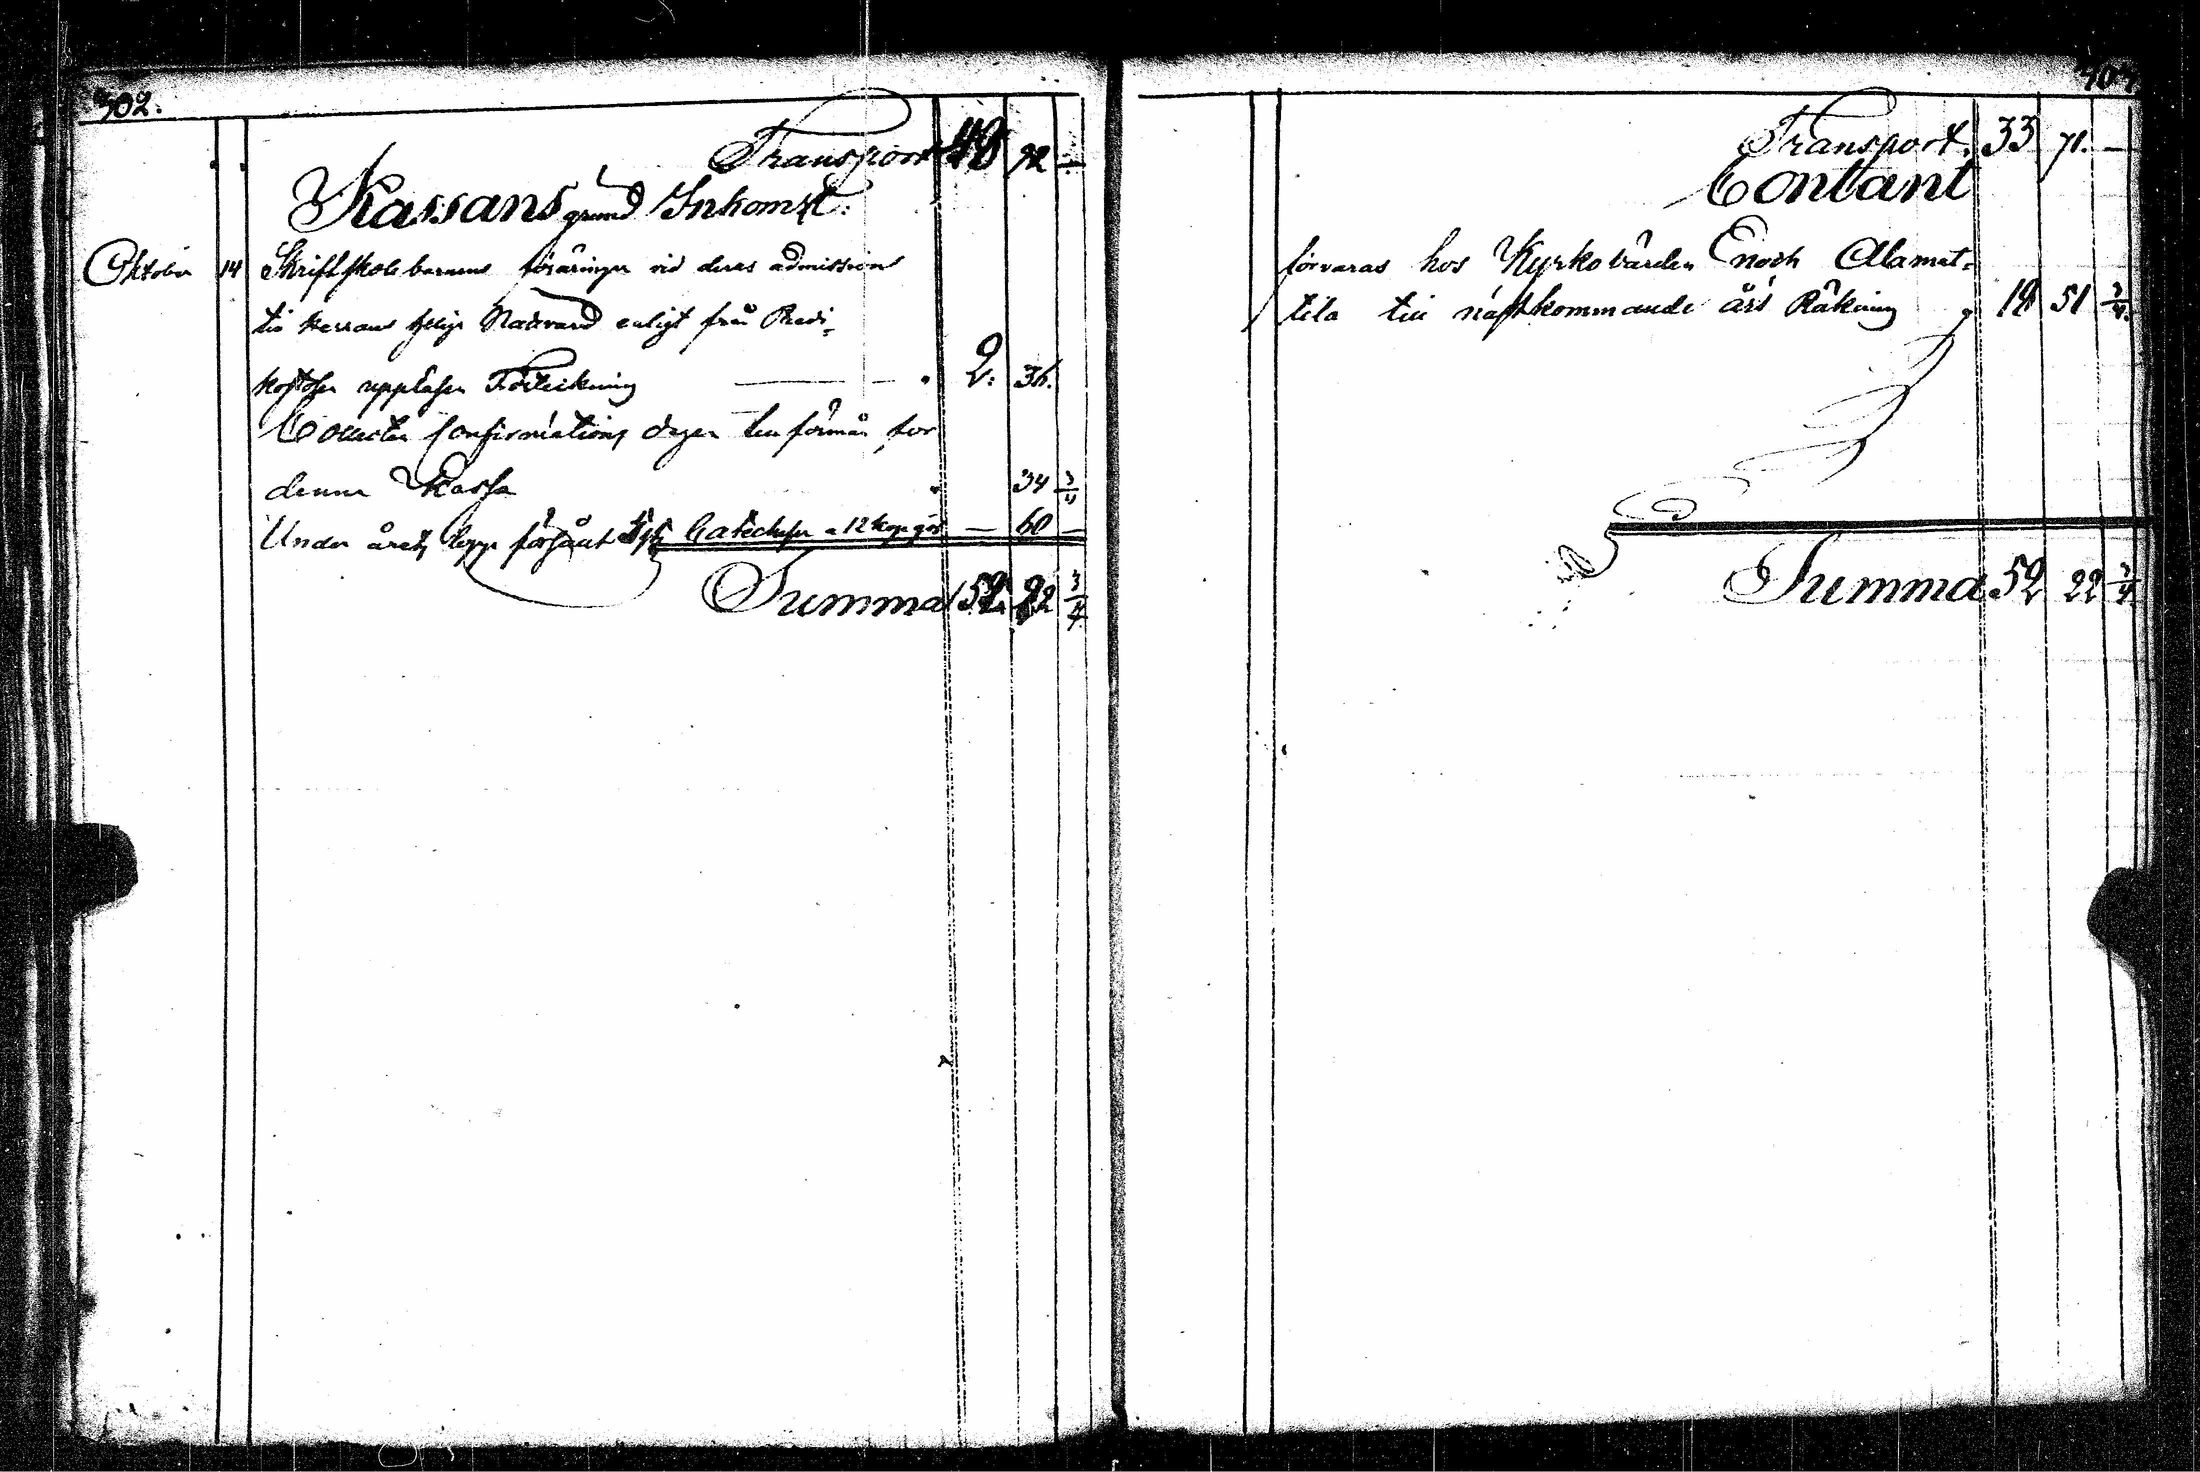 302.
Transport 48 92 —
Kassans grund Inkomst:
Oktober 14 Skriftskole barnens föräringar vid deras admission
till Herrans Helige Nattvard enligt från Predi-
kostolen uppläsen Förteckning — 2. 36.
Collecten Confirmations dagen till förmån för
denna Kassa 34 3/4
Under årets lopp försålt Catecheser a 12 kop gör — 60 —
Summa 52 22 3/4
303
Transport. 33 71. —
Contant
förvaras hos Kyrkovärden Enoch Alamat-
tila till nästkommande års Räkning 18 51 3/4
Summa 52 22 3/4